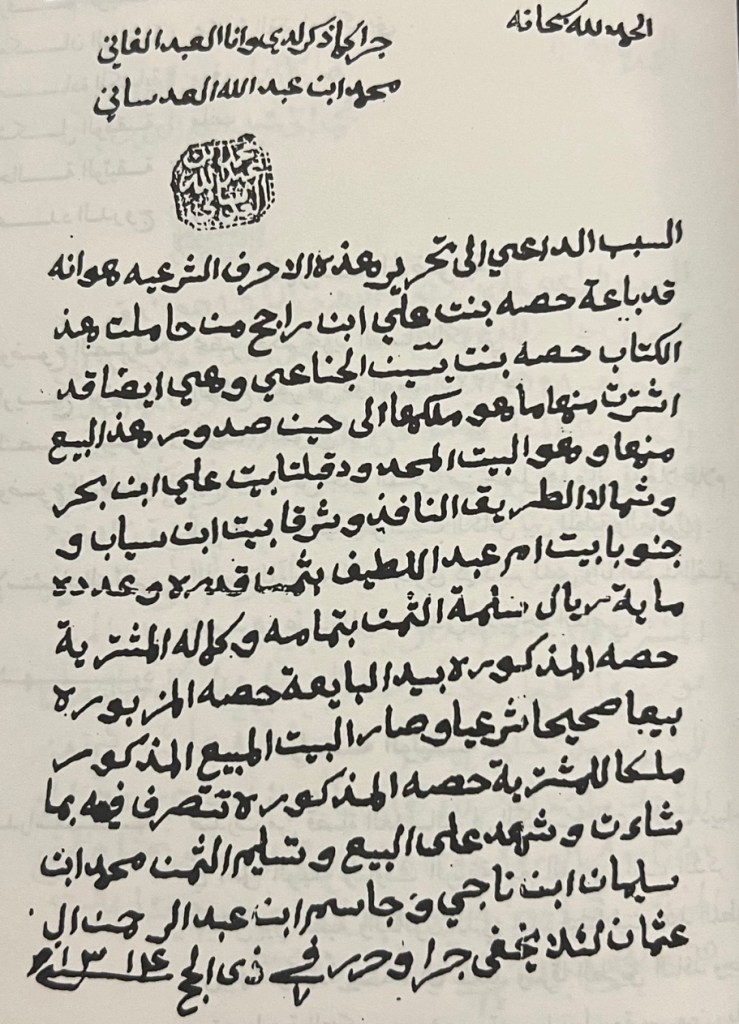 الحمد لله سبحانه
جرا كما ذكر لدي وانا العبد الفاني
محمد ابن عبد الله العدساني
السبب الداعي الى تحرير هذه الاحرف الشرعيه هو انه
قد باعة حصه بنت علي ابن راجح من حاملت هذ
الكتاب حصه بنت يٰسين الجناعي وهي ايضا قد
اشترت منها ما هو ملكها الى حين صدور هذ البيع
منها وهو البيت المحدود قبلتا بيت علي ابن بحر
وشمالا الطريق النافذ وشرقا بيت ابن سياب و
جنوبا بيت ام عبد اللطيف بثمنا قدره وعدده
ماية ريال سلمة الثمن بتمامه وكماله المشترية
حصه المذكوره بيد البايعة حصه المزبوره
بيعا صحيحا شرعيا وصار البيت المبيع المذكور
ملكا للمشترية حصه المذكوره تتصرف فيه بما
شاءت وشهد على البيع وتسليم الثمن محمد ابن
سليمان ابن ناجي وجاسم ابن عبد الرحمن ال
عثمان لئلا يخفى جرا وحرر في ٧ ذي الحج